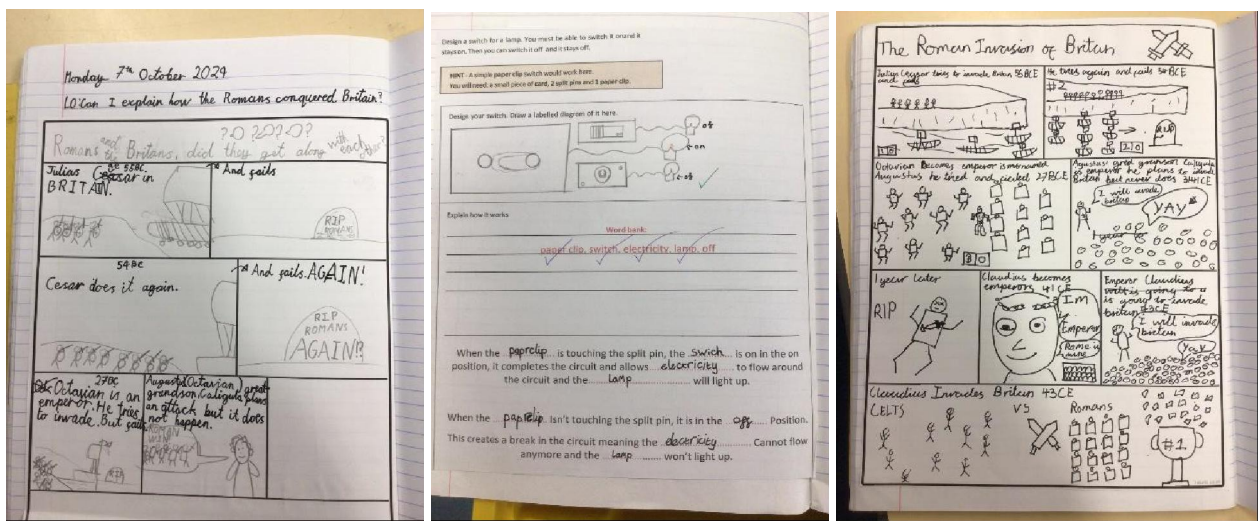 Monday 7th October 2024
LO: Can I explain how the Romans conquered Britain?
Romans and the Britans, did they get along with each other?
Julias Cesar in
BC 55BC.
BRITAN.
And fails
RIP
ROMANS
54 BC
Cesar does it again.
And fails. AGAIN!
RIP
ROMANS
AGAIN!?
27BC
Octavian is an
emperor. He tries
to invade. But fails
Augustus Octavian, great
grandson, Caligula plans
an attack but it does
not happen.
ROMAN
WIN
Design a switch for a lamp. You must be able to switch it on and it
stays on. Then you can switch it off and it stays off.
HINT - A simple paper clip switch would work here.
You will need: a small piece of card, 2 split pins and 1 paper clip.
Design your switch. Draw a labelled diagram of it here.
off
on
off
Explain how it works
Word bank:
paper clip, switch, electricity, lamp, off
When the paprclip is touching the split pin, the swich is on in the on
position, it completes the circuit and allows electricity to flow around
the circuit and the lamp will light up.
When the paprclip Isn't touching the split pin, it is in the off Position.
This creates a break in the circuit meaning the electricity Cannot flow
anymore and the lamp won't light up.
The Roman Invasion of Britain
Julius Ceaser tries to invade Britain 55BCE
and fails
1 0
He tries again and fails 54BCE
#2
RIP
2 0
Octavian Becomes emperor is renamed
Augustus he tried and failed 27BCE
3 0
Augustus' great grandson Caligula
is emperor he plans to invade
Britain but never does
I will invade
britain
YAY
1 year later
RIP
Claudius becomes
emperor 41CE
IM
Emperor
Rome is
mine
Emperor Claudius
is going to invade
britain 43CE
I will invade
britain
Yay
Claudius Invades Britain 43CE
CELTS
VS
Romans
#1